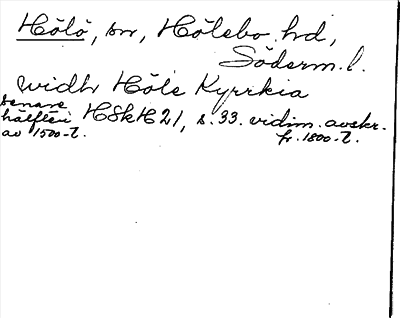 Hölö, sn, Hölebo hd,
Söderm. l.
widh Höle Kyrrkia
senare
hälften HSkH 21, s. 33. vidim. avskr.
av 1500-t. fr. 1800-t.